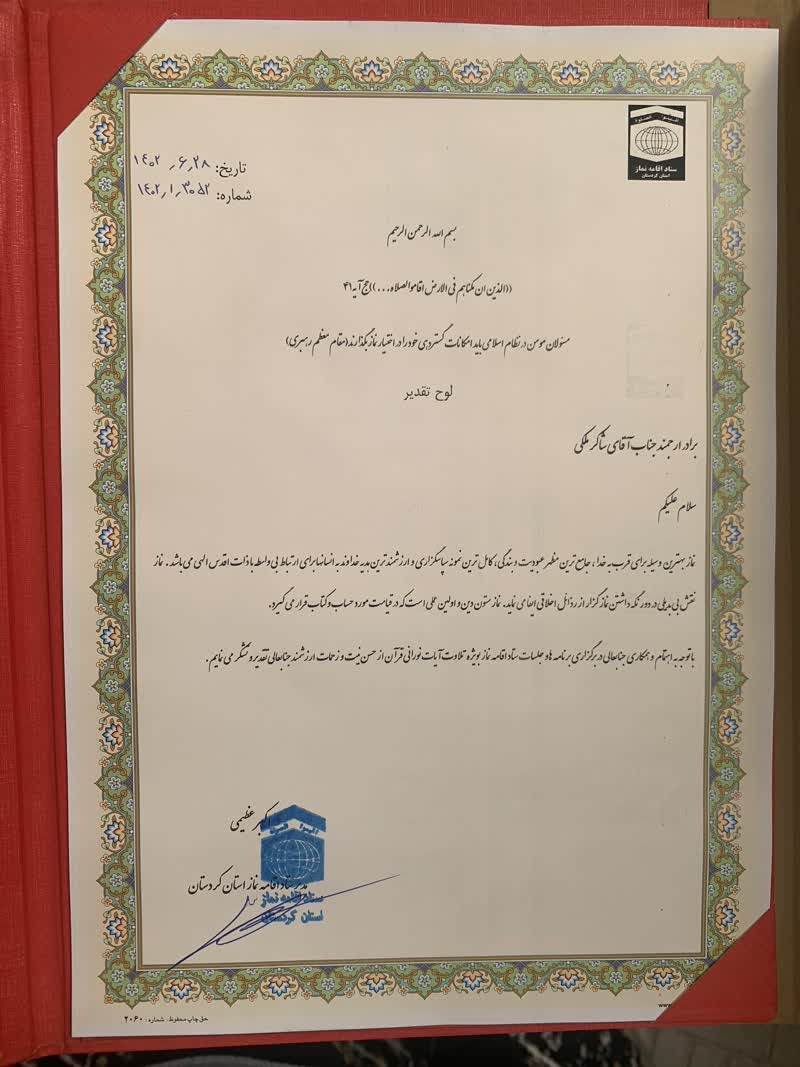 ستاد اقامه نماز
استان کردستان
تاریخ: ۱۴۰۲٫۶٫۲۸
شماره: ۱۴۰۲٫۱٫۳۰۵۲
بسم الله الرحمن الرحیم
((الذین ان مکناهم فی الارض اقامو الصلاه...))حج آیه ۴۱
مسئولان مومن در نظام اسلامی باید امکانات گسترده ی خود را در اختیار نماز بگذارند(مقام معظم رهبری)
لوح تقدیر
برادر ارجمند جناب آقای شاکر ملکی
سلام علیکم
نماز بهترین وسیله برای قرب به خدا ، جامع ترین مظهر عبودیت و بندگی، کامل ترین نمونه سپاسگزاری و ارزشمند ترین هدیه خداوند به انسانها برای ارتباط بی واسطه با ذات اقدس الهی می باشد . نماز
نقش بی بدیلی در دور نگه داشتن نماز گزار از رذائل اخلاقی ایفا می نماید. نماز ستون دین و اولین عملی است که در قیامت مورد حساب و کتاب قرار می گیرد.
با توجه به اهتمام و همکاری جنابعالی در برگزاری برنامه ها و جلسات ستاد اقامه نماز بویژه تلاوت آیات نورانی قرآن از حسن نیت و زحمات ارزشمند جنابعالی تقدیر و تشکر می نمایم .
اکبر عظیمی
مدیر ستاد اقامه نماز استان کردستان
ستاد اقامه نماز
استان کردستان
حق چاپ محفوظ . شماره : ۲۰۶۰
www